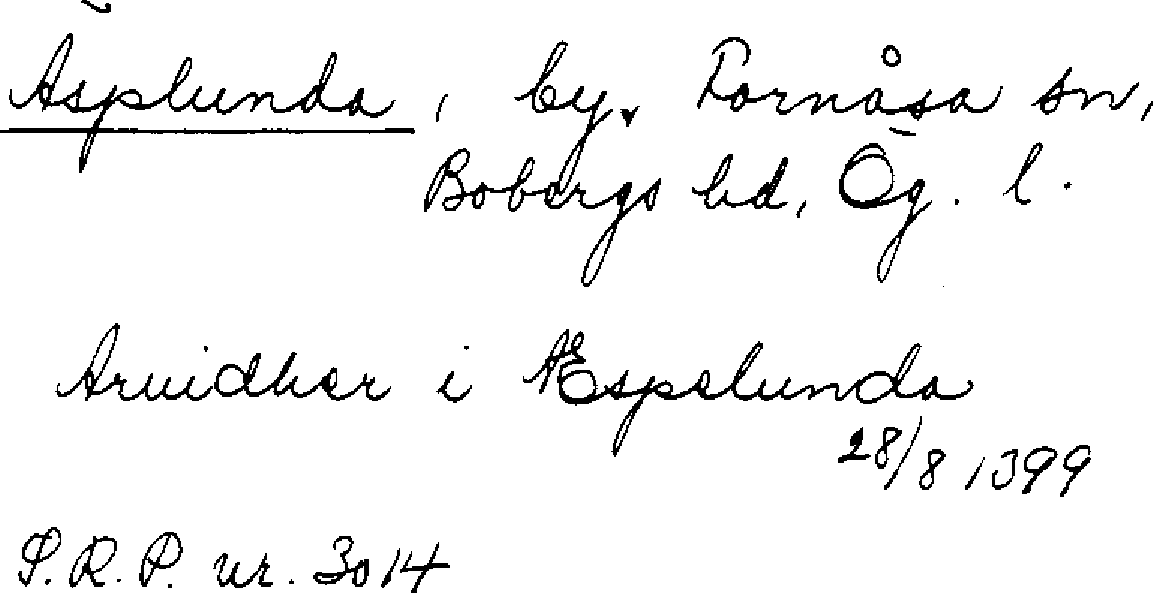 Äsplunda, by, Fornåsa sn,
Bobergs hd, Ög. l.
Arvidher i Æspelunda
28/8 1399
S.R.P. nr. 3014